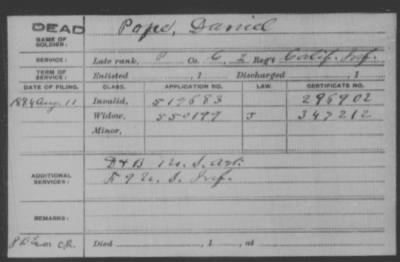 DEAD
NAME OF SOLDIER: Pope, Daniel
SERVICE: Late rank, P Co. C 2 Reg't Calif. Inf.
TERM OF SERVICE: Enlisted , 1 Discharged , 1
DATE OF FILING. CLASS. APPLICATION NO. LAW. CERTIFICATE NO.
1884 Aug. 11 Invalid, 519683 296902
Widow, 550199 347212
Minor,
ADDITIONAL SERVICES: D & B 1 U.S. Art.
K 9 U.S. Inf.
REMARKS:
Died , 1 , at